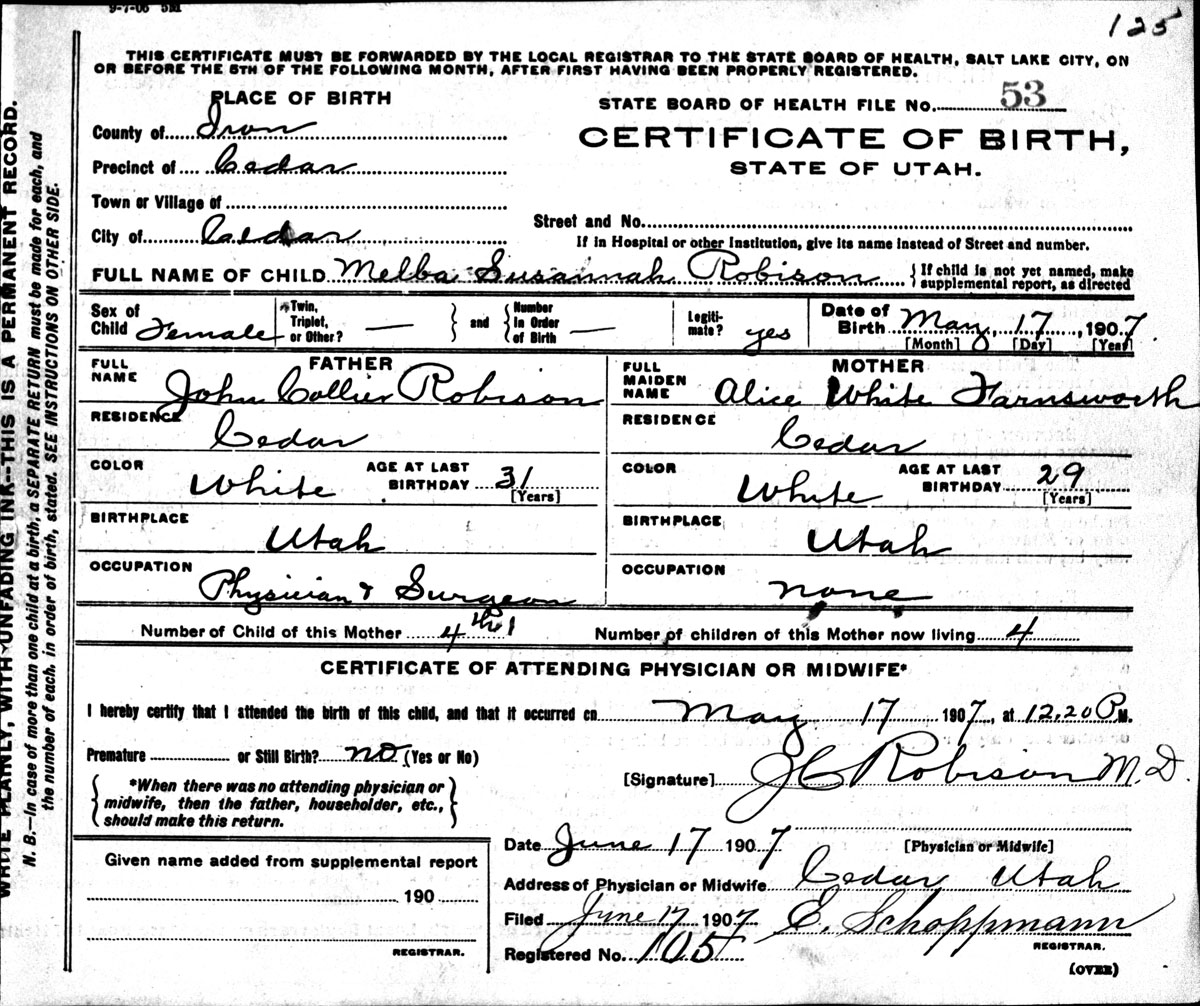 9-7-06 5M
125
THIS CERTIFICATE MUST BE FORWARDED BY THE LOCAL REGISTRAR TO THE STATE BOARD OF HEALTH, SALT LAKE CITY, ON
OR BEFORE THE 5TH OF THE FOLLOWING MONTH, AFTER FIRST HAVING BEEN PROPERLY REGISTERED.
PLACE OF BIRTH
STATE BOARD OF HEALTH FILE No. 53
County of Iron
CERTIFICATE OF BIRTH,
Precinct of Cedar
STATE OF UTAH.
Town or Village of
Street and No.
City of Cedar
If in Hospital or other Institution, give its name instead of Street and number.
FULL NAME OF CHILD Melba Susannah Robison { If child is not yet named, make supplemental report, as directed
Sex of Child Female
Twin, Triplet, or Other? — } and { Number in Order of Birth —
Legitimate? yes
Date of Birth May 17, 1907
[Month] [Day] [Year]
FATHER
FULL NAME John Collier Robison
RESIDENCE Cedar
COLOR White AGE AT LAST BIRTHDAY 31
[Years]
BIRTHPLACE Utah
OCCUPATION Physician & Surgeon
MOTHER
FULL MAIDEN NAME Alice White Farnsworth
RESIDENCE Cedar
COLOR White AGE AT LAST BIRTHDAY 29
[Years]
BIRTHPLACE Utah
OCCUPATION none
Number of Child of this Mother 4th Number of children of this Mother now living 4
CERTIFICATE OF ATTENDING PHYSICIAN OR MIDWIFE*
I hereby certify that I attended the birth of this child, and that it occurred on May 17 1907, at 12.20 P M.
Premature or Still Birth? no (Yes or No)
[Signature] J C Robison M.D.
{ *When there was no attending physician or
midwife, then the father, householder, etc.,
should make this return. }
[Physician or Midwife]
Date June 17 1907
Address of Physician or Midwife Cedar Utah
Filed June 17 1907 E. Schoppmann
REGISTRAR.
Registered No. 105
(OVER)
Given name added from supplemental report
190
REGISTRAR.
WRITE PLAINLY, WITH UNFADING INK--THIS IS A PERMANENT RECORD.
N. B.—In case of more than one child at a birth, a SEPARATE RETURN must be made for each, and
the number of each, in order of birth, stated. SEE INSTRUCTIONS ON OTHER SIDE.